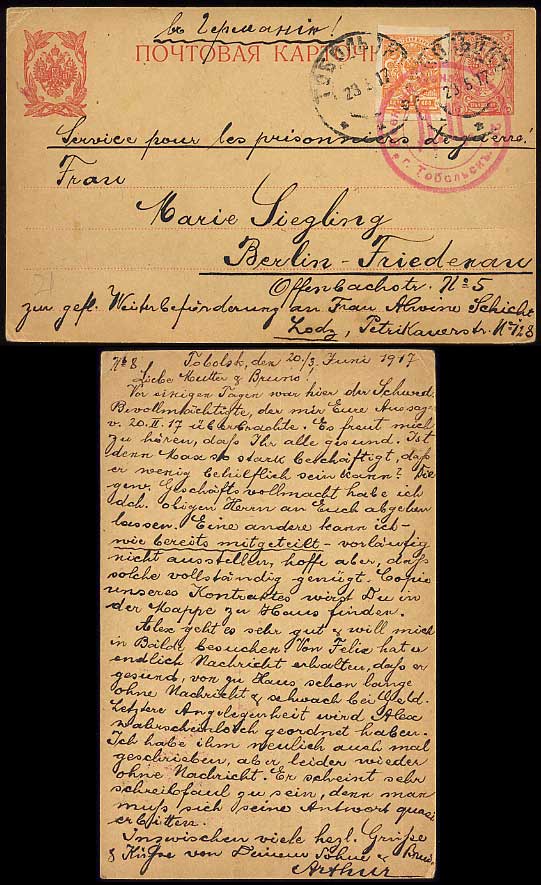 въ Германію!
ПОЧТОВАЯ КАРТОЧКА
ТОБОЛЬСК
23 5 17
ТОБОЛЬСК
23 5 17
г. Тобольскъ
Service pour les prisonniers de guerre!
Frau
Marie Siegling
Berlin-Friedenau
Offenbachstr. № 5
zur gefl. Weiterbeförderung an Frau Alwine Schicht
Lodz, Petrikauerstr. № 128
№ 8 Tobolsk, den 20./3. Juni 1917
Liebe Mutter & Bruno!
Vor einigen Tagen war hier der Schwed.
Bevollmächtigte, der mir Eure Aussage
v. 20.II.17 überbrachte. Es freut mich
zu hören, daß Ihr alle gesund. Ist
denn Max so stark beschäftigt, daß
er wenig behilflich sein kann? Die
gew. Geschäftsvollmacht habe ich
dch. obigen Herrn an Euch abgehen
lassen. Eine andere kann ich –
wie bereits mitgeteilt – vorläufig
nicht ausstellen, hoffe aber, daß
solche vollständig genügt. Copie
unseres Kontraktes wirst Du in
der Mappe zu Haus finden.
Alex geht es sehr gut & will mich
in Bälde besuchen. Von Felix hat er
endlich Nachricht erhalten, daß er
gesund, von zu Haus schon lange
ohne Nachricht & schwach bei Geld.
Letztere Angelegenheit wird Alex
wahrscheinlich geordnet haben.
Ich habe ihm neulich auch mal
geschrieben, aber leider wieder
ohne Nachricht. Er scheint sehr
schreibfaul zu sein, denn man
muß sich seine Antwort quasi
erbitten.
Inzwischen viele hezl. Grüße
& Küsse von Deinem Sohne & Brud.
Arthur